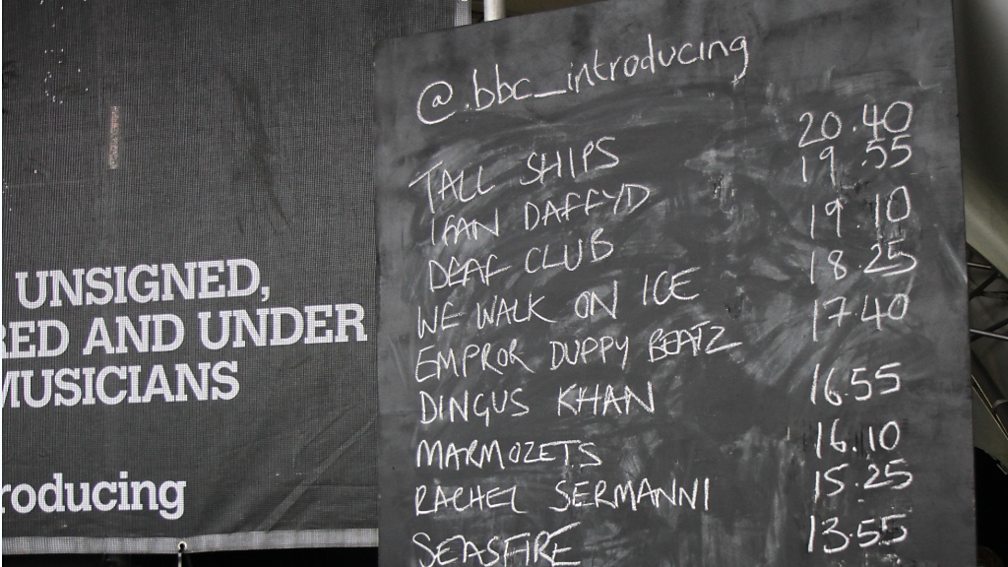 UNSIGNED,
RED AND UNDER
MUSICIANS
roducing
@.bbc_introducing
TALL SHIPS 20.40
IFAN DAFFYD 19.55
DEAF CLUB 19 10
WE WALK ON ICE 18.25
EMPROR DUPPY BEATZ 17.40
DINGUS KHAN 16.55
MARMOZETS 16.10
RACHEL SERMANNI 15.25
SEASFIRE 13.55